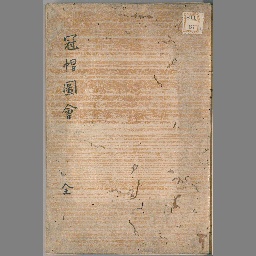 冠帽圖會 全